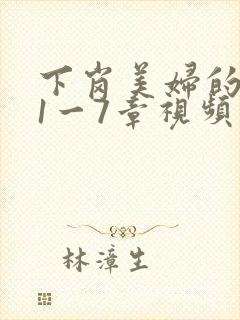 下岗美婦的
1一7章視頻
林漳生